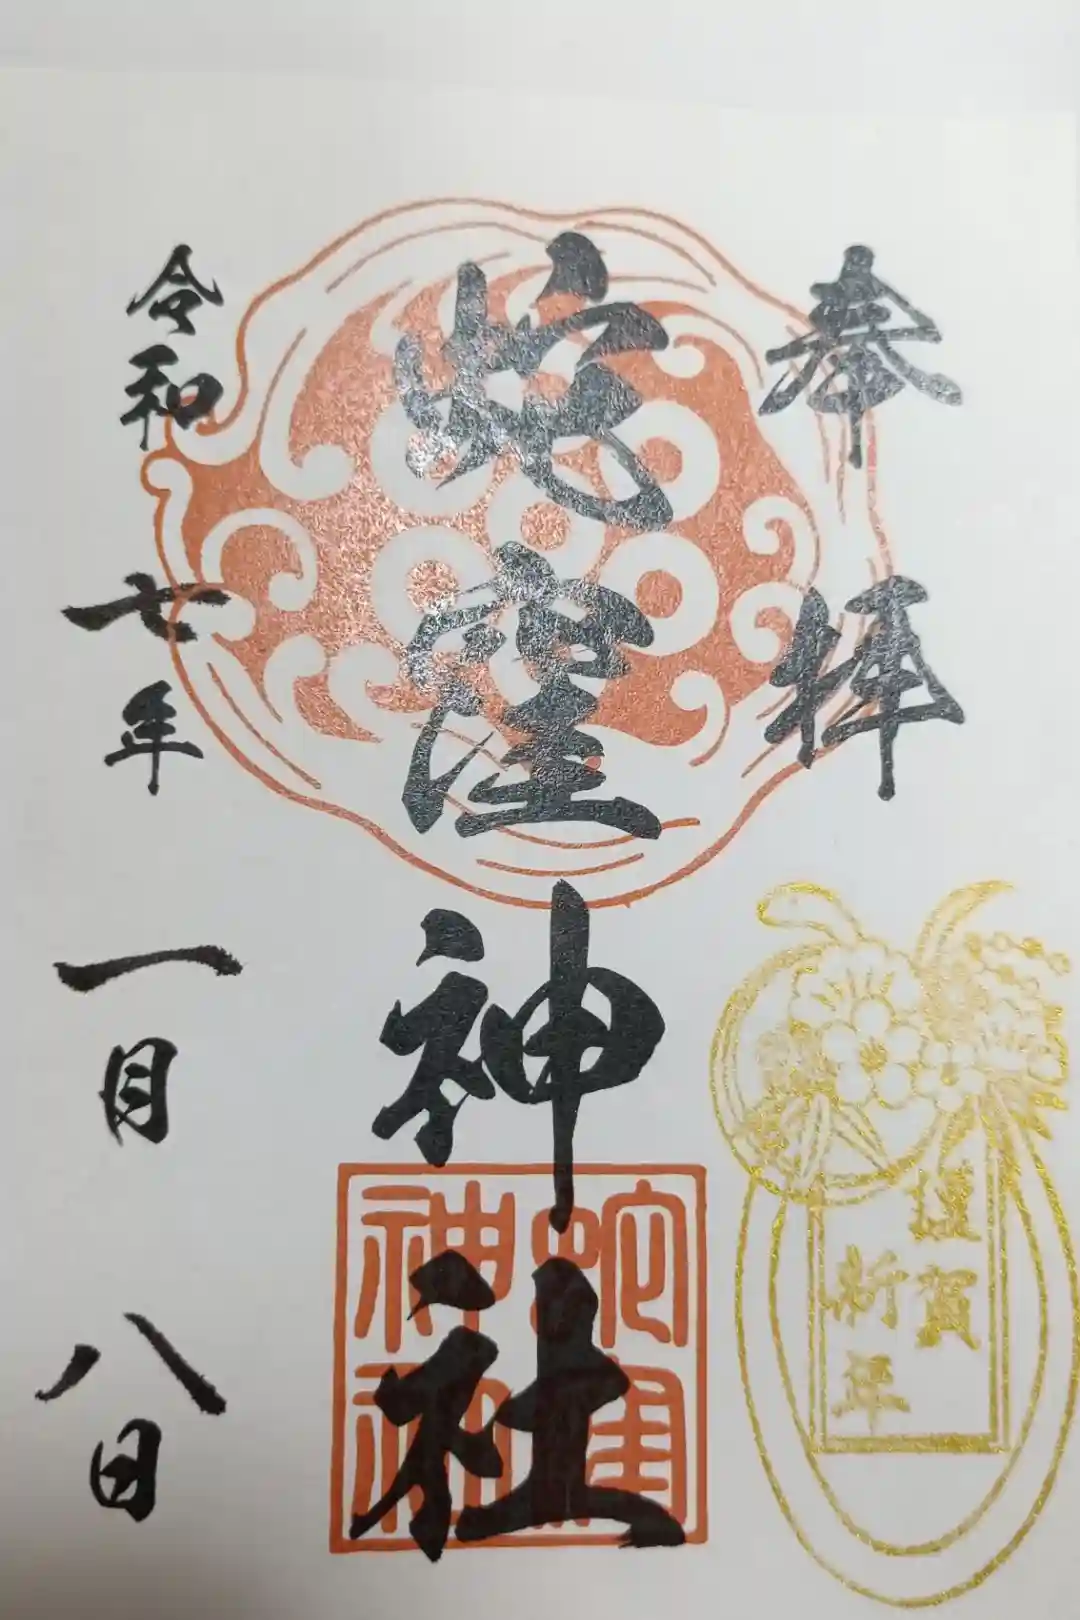 奉拝
蛇窪神社
令和七年一月八日
謹賀
新年
蛇窪
神社